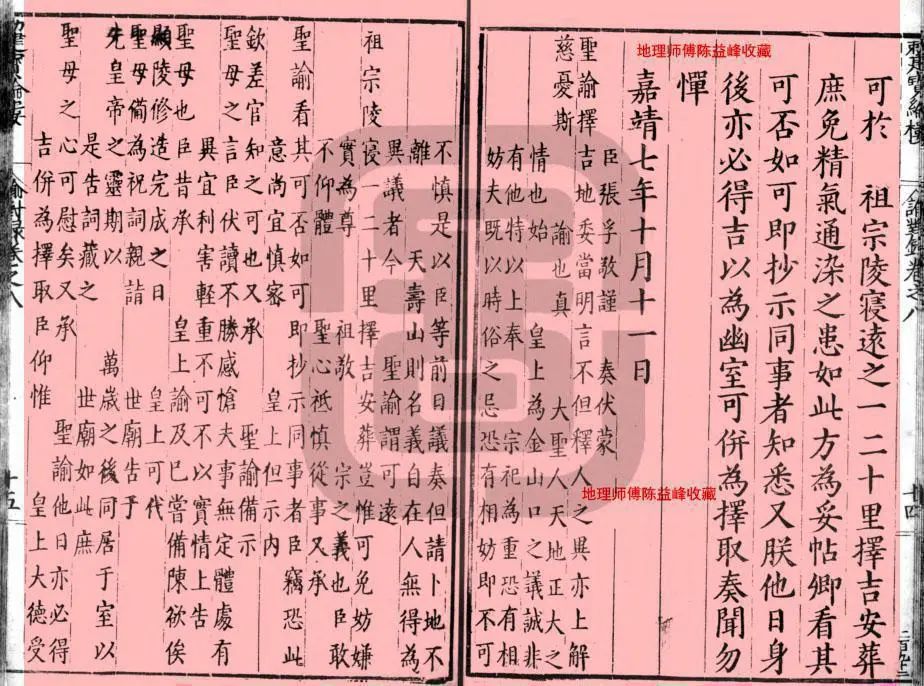 可於　祖宗陵寢遠之一二十里擇吉安葬
庶免精氣通染之患如此方為妥帖卿看其
可否如可即抄示同事者知悉又朕他日身
後亦必得吉以為幽室可併為擇取奏聞勿
憚
嘉靖七年十月十一日
臣張孚敬謹　奏伏蒙
聖諭擇吉地委當明言不但釋人之異亦上解
慈憂斯　諭也真　大聖人天地正大之
情也始　皇上為金山口之議誠非
有他特以上奉　宗祀為重恐有相
妨夫既以時俗之忌恐有相妨即不可
不慎是以臣等前日議奏但請卜地不
離　天壽山則名義自在人無得為
異議者今　聖諭謂可遠
祖宗陵寢一二十里擇吉安葬豈惟可免妨嫌
實為尊　祖敬　宗之義也臣敢
不仰體　聖心祗慎從事又承
聖諭看其可否如可即抄示同事者臣竊恐此
意尚宜慎密　皇上但示內
欽差官知之可也又承　聖諭備示
聖母之言臣伏讀不勝感愴夫事無定體處有
異宜利害輕重不可不以實情上告
聖母也臣昔承　皇上諭及已嘗備陳欲俟
顯陵修造完成之日　皇上可代
聖母備為祝詞親詣　世廟告于
先皇帝之靈期以　萬歲之後同居于室以
是告詞藏之　世廟如此庶
聖母之心可慰矣又承　聖諭他日亦必得
吉併為擇取臣仰惟　皇上大德受
諭對錄卷之八
十四
十五
地理师傅陈益峰收藏
地理师傅陈益峰收藏